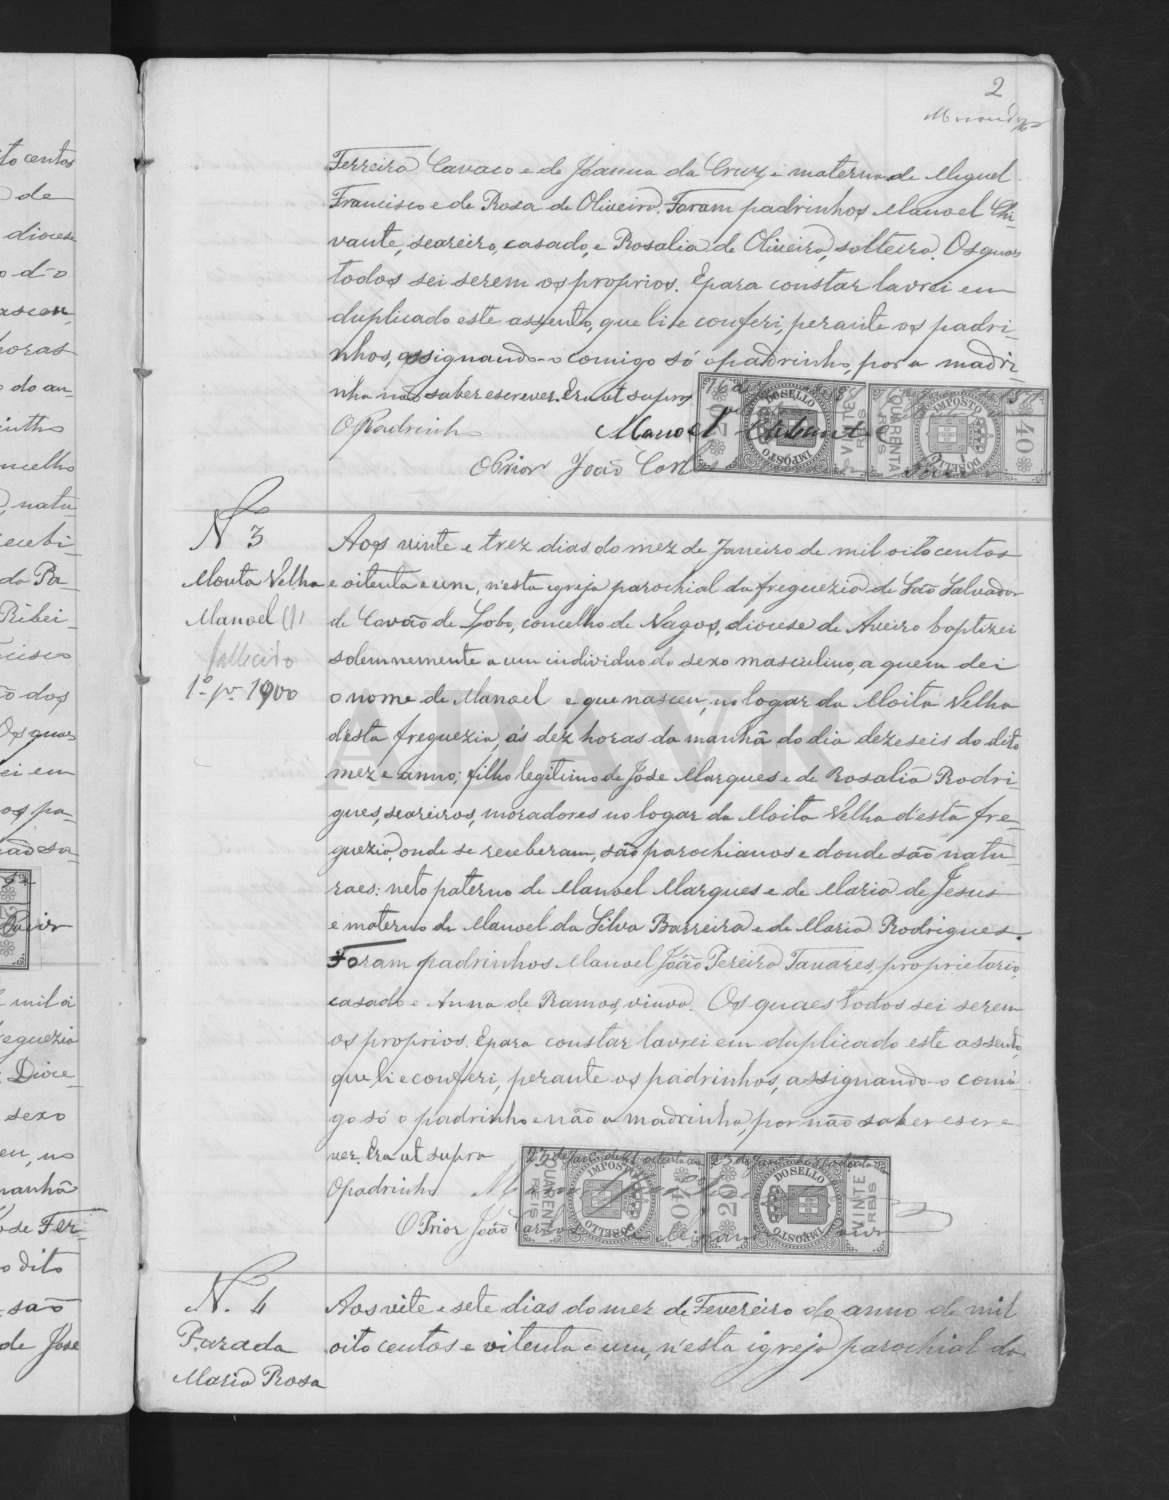 2
Ferreira Cavaco e de Joanna da Cruz e materno de Miguel
Francisco e de Rosa de Oliveira. Foram padrinhos Manoel Chi-
vante, seareiro, casado, e Rosalia de Oliveira, solteira. Os quaes
todos sei serem os proprios. E para constar lavrei em
duplicado este assento, que li e conferi, perante os padri-
nhos, assignando-o comigo só o padrinho, por a madri-
nha não saber escrever. Era ut supra
O Padrinho Manoel
O Prior João Carl
N 3
Mouta Velha
Manoel
falleceu
1900
Aos vinte e trez dias do mez de Janeiro de mil oitocentos
e oitenta e um, n'esta igreja parochial da freguezia de São Salvador
de Covão de Lobo, concelho de Vagos, diocese de Aveiro baptizei
solemnemente a um individuo do sexo masculino, a quem dei
o nome de Manoel e que nasceu, no logar da Moita Velha
d'esta freguezia, ás dez horas da manhã do dia dezeseis do dito
mez e anno; filho legitimo de Jose Marques e de Rosalia Rodri-
gues, seareiros, moradores no logar da Moita Velha d'esta fre-
guezia, onde se receberam, são parochianos e donde são natu-
raes: neto paterno de Manoel Marques e de Maria de Jesus
e materno de Manoel da Silva Barreira e de Maria Rodrigues.
Foram padrinhos Manoel João Pereira Tavares, proprietario,
casado e Anna de Ramos, viuva. Os quaes todos sei serem
os proprios. E para constar lavrei em duplicado este assento,
que li e conferi, perante os padrinhos, assignando-o comi-
go só o padrinho e não a madrinha, por não saber escre-
ver. Era ut supra
O padrinho
O Prior João Carlos
IMPOSTO DO SELLO
QUARENTA REIS
40
20
VINTE REIS
N. 4
Parada
Maria Rosa
Aos vite e sete dias do mez de Fevereiro do anno de mil
oito centos e oitenta e um, n'esta igreja parochial da
ADAVR